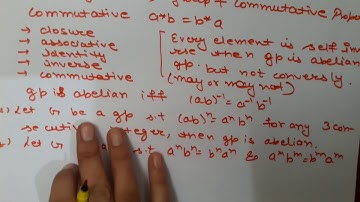 commutative
a*b = b*a
→ closure
→ associative
→ Identity
→ inverse
→ commutative
Every element is self inve
rse then gp is abelian
gp. but not conversly.
(may or may not)
gp is abelian iff (ab)⁻¹ = a⁻¹ b⁻¹
Let G be a gp s.t (ab)ⁿ = aⁿbⁿ for any 3 con
secutive integer, then gp is abelian.
Let G s.t aⁿbⁿ = bⁿaⁿ & aᵐbᵐ = bᵐaᵐ